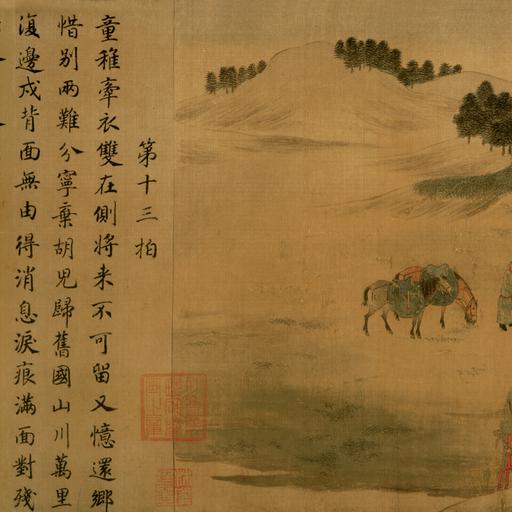 第十三拍
童稚牽衣雙在側將来不可留又憶還鄉
惜别兩難分寧棄胡兒歸舊國山川萬里
復邊戍背面無由得消息淚痕滿面對殘